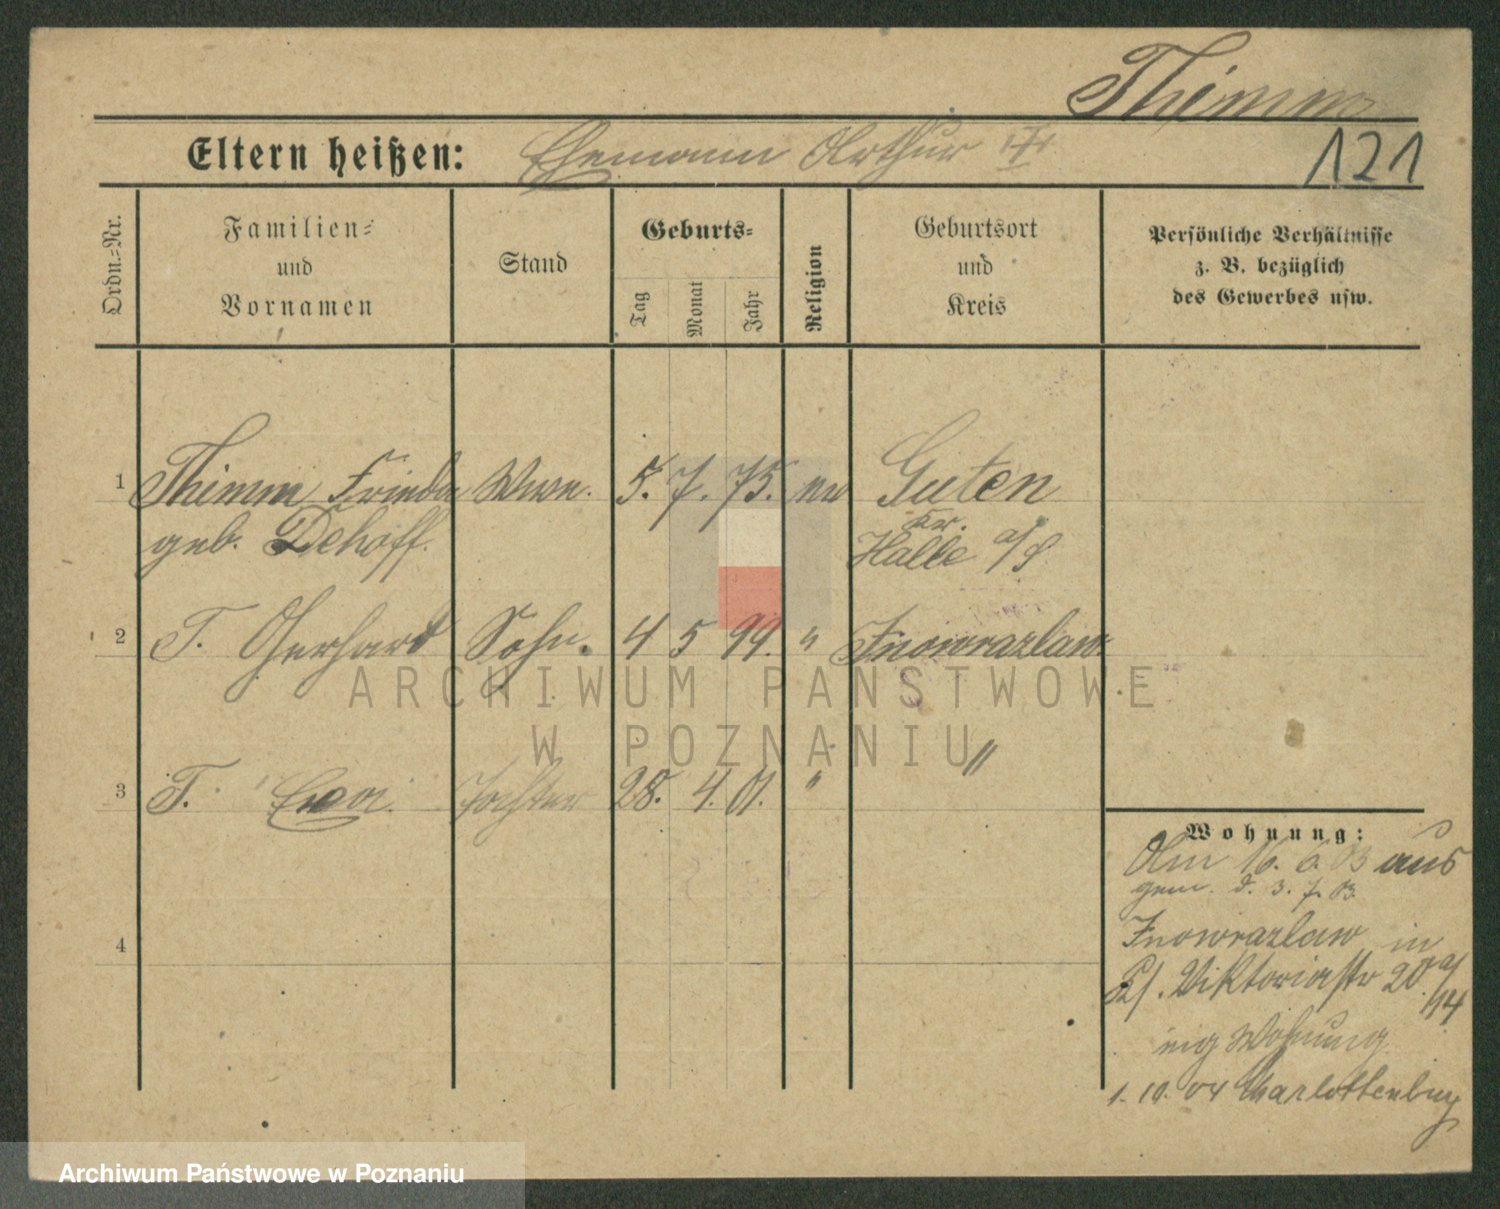 Thimm
Eltern heißen: Ehemann Arthur
121
Ordn.-Nr.
Familien-
und
Vornamen
Stand
Geburts-
Tag
Monat
Jahr
Religion
Geburtsort
und
Kreis
Persönliche Verhältnisse
z. B. bezüglich
des Gewerbes usw.
1 Thimm Frieda Wwe. 5. 7. 75. ev Guten
geb. Dehoff. Kr.
Halle a/S
2 T. Gerhard Sohn. 4 5 99. " Inowrazlaw
ARCHIWUM PAŃSTWOWE
W POZNANIU
3 T. Eva. Tochter 28. 4. 01. " "
Wohnung:
Am 16. 6. 03 aus
gem. d. 3. 7. 03
4
Inowrazlaw in
Viktoriastr 20
Wohnung
1. 10. 04 Charlottenburg
Archiwum Państwowe w Poznaniu